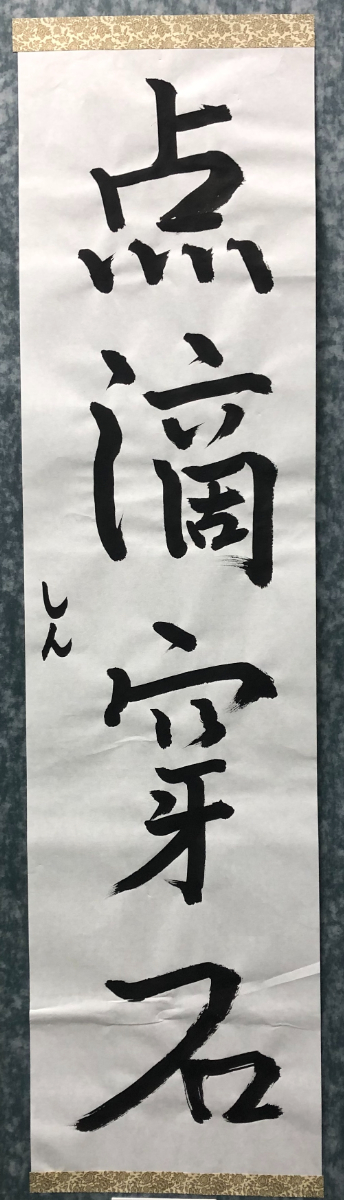 点滴穿石
しん